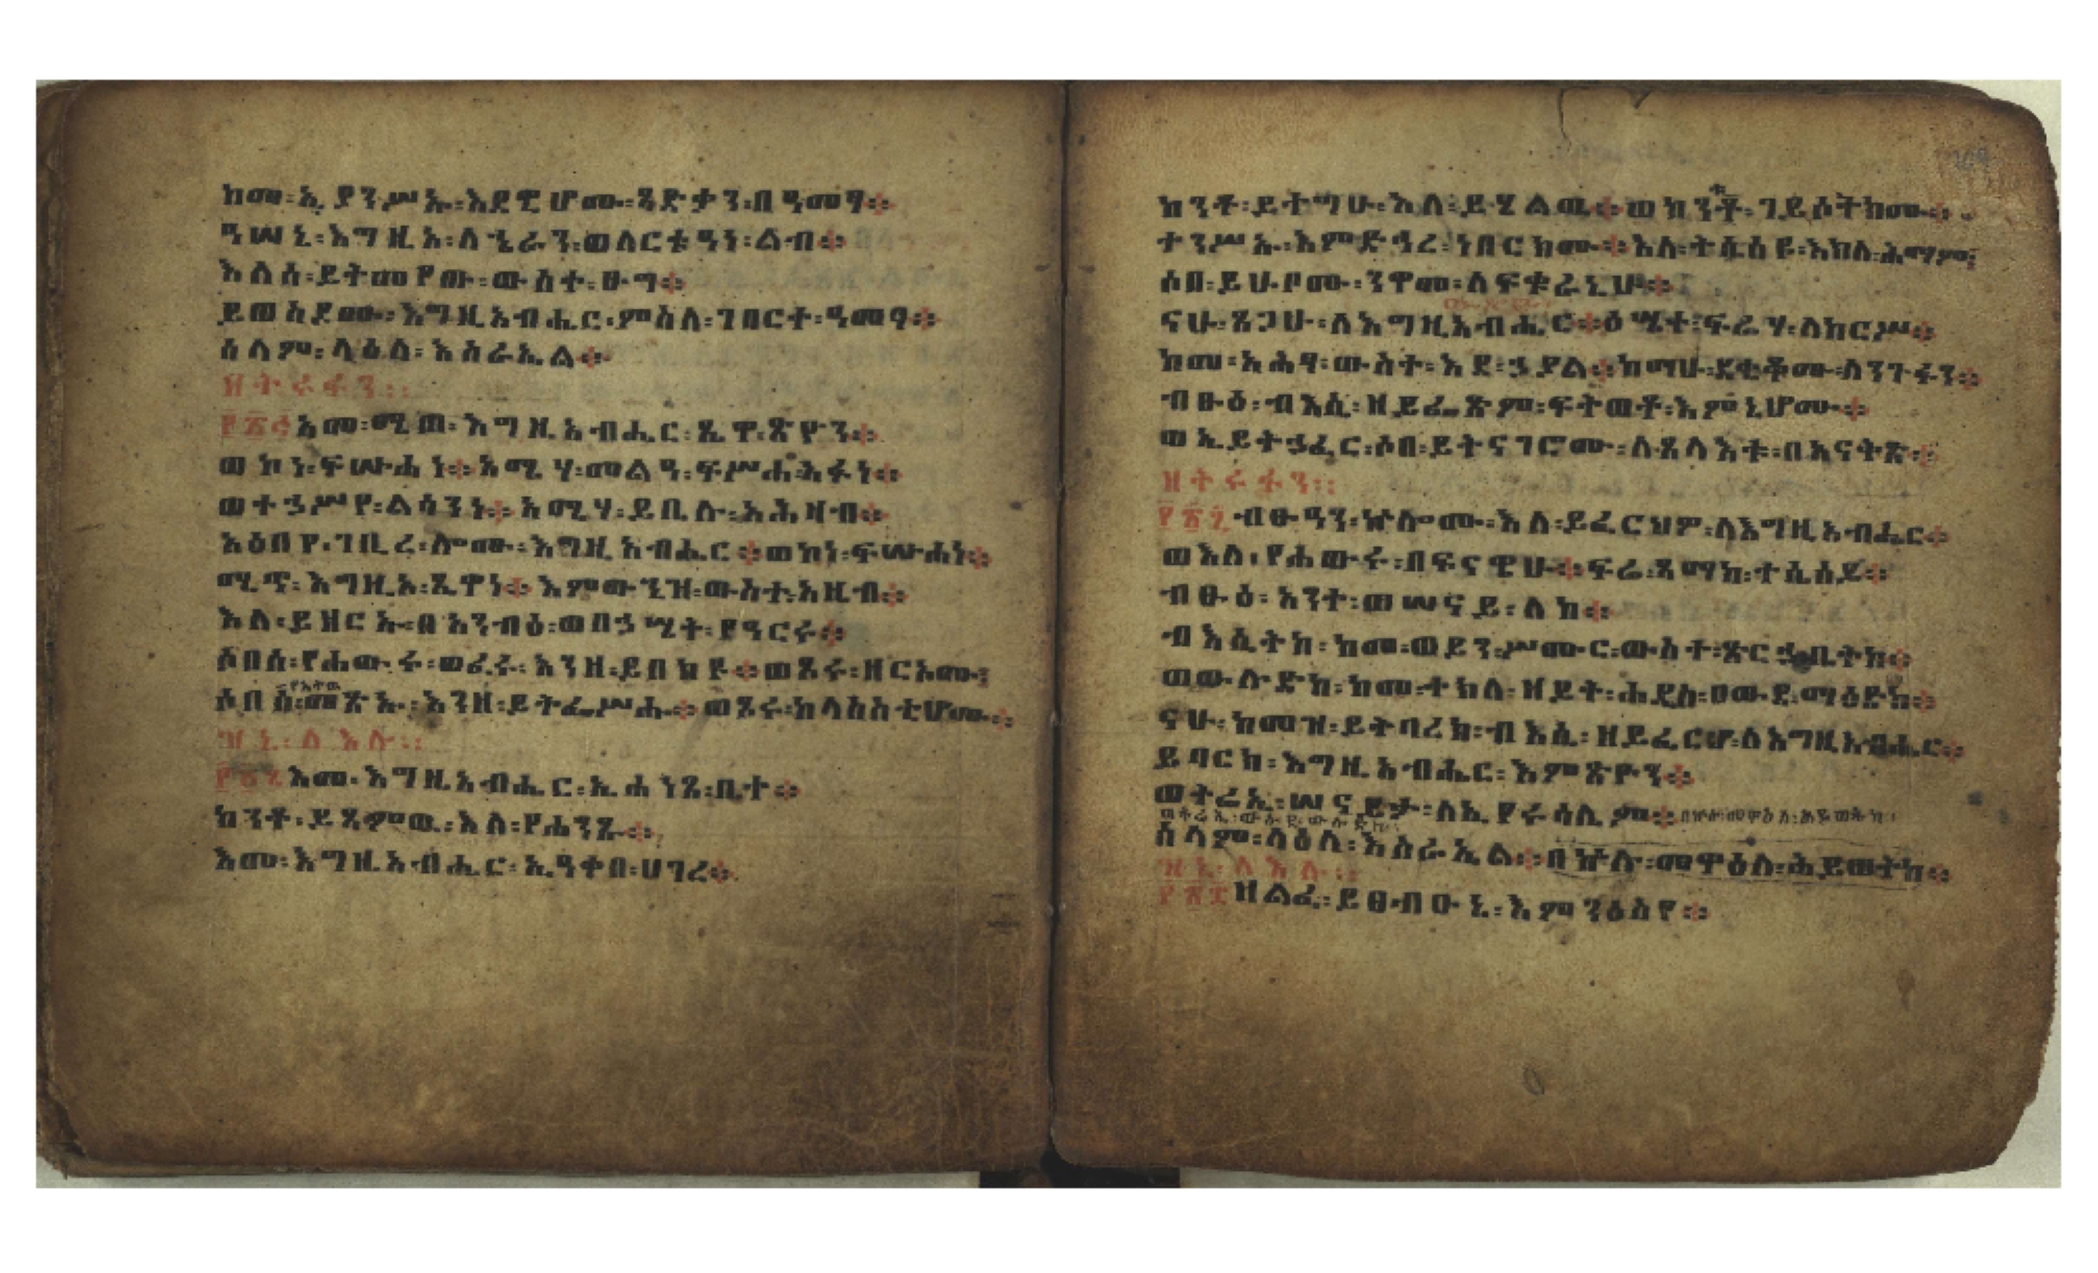 ከመ፡ኢያንሥኡ፡እደዊሆሙ፡ጻድቃን፡በዓመፃ።
ዓሠኒ፡እግዚአ፡ለኄራን፡ወለርቱዓነ፡ልብ።
እለሰ፡ይትመየጡ፡ውስተ፡ፁግ።
ይወስዶሙ፡እግዚአብሔር፡ምስለ፡ገበርተ፡ዓመፃ።
ሰላም፡ላዕለ፡እስራኤል።
ዘትሩፋን፡፡
፻፳፭አመ፡ሜጠ፡እግዚአብሔር፡ጼዋ፡ጽዮን።
ወኮነ፡ፍሡሐነ።አሜሃ፡መልዓ፡ፍሥሐ፡አፉነ።
ወተኃሥየ፡ልሳንነ።አሜሃ፡ይቤሉ፡አሕዛብ።
አዕበየ፡ገቢረ፡ሎሙ፡እግዚአብሔር።ወኮነ፡ፍሡሐነ።
ሚጥ፡እግዚአ፡ጼዋነ።እምውኂዝ፡ውስተ፡አዜብ።
እለ፡ይዘርኡ፡በአንብዕ፡ወበኃሤት፡የዓርሩ።
ሶበሰ፡የሐውሩ፡ወፈሩ፡እንዘ፡ይበክዩ።ወጾሩ፡ዘርኦሙ፡
የአትው
ሶበሰ፡መጽኡ፡እንዘ፡ይትፌሥሑ።ወጾሩ፡ከላስስቲሆሙ።
ዝኒ፡ለእሉ፡፡
፻፳፮እመ፡እግዚአብሔር፡ኢሐነጸ፡ቤተ።
ከንቶ፡ይጻምዉ፡እለ፡የሐንጹ።
እመ፡እግዚአብሔር፡ኢዓቀበ፡ሀገረ።
ከንቶ፡ይተግሁ፡እለ፡ይሄልዉ።ወከንቶ፡ገይሶትክሙ።
ተንሥኡ፡እምድኅረ፡ነበርክሙ።እለ፡ትሴሰዩ፡እክለ፡ሕማም፡
ሶበ፡ይሁቦሙ፡ንዋመ፡ለፍቁራኒሁ።
ናሁ፡ጸጋሁ፡ለእግዚአብሔር።ዕሤተ፡ፍሬሃ፡ለከርሥ።
ከመ፡አሕፃ፡ውስተ፡እደ፡ኃያል።ከማሁ፡ደቂቆሙ፡ለንጉፋን።
ብፁዕ፡ብእሲ፡ዘይፌጽም፡ፍትወቶ፡እምኔሆሙ።
ወኢይትኃፈር፡ሶበ፡ይትናገሮሙ፡ለጸላእቱ፡በአናቅጽ፡
ዘትሩፋን፡፡
፻፳፯ብፁዓን፡ኵሎሙ፡እለ፡ይፈርህዎ፡ለእግዚአብሔር።
ወእለ፡የሐውሩ፡በፍናዊሁ።ፍሬ፡ጻማከ፡ተሴሰይ።
ብፁዕ፡አንተ፡ወሠናይ፡ለከ።
ብእሲትከ፡ከመ፡ወይን፡ሥሙር፡ውስተ፡ጽርኃ፡ቤትከ።
ወውሉድከ፡ከመ፡ተክለ፡ዘይት፡ሐዲስ፡ዐውደ፡ማዕድከ።
ናሁ፡ከመዝ፡ይትባረክ፡ብእሲ፡ዘይፈርሆ፡ለእግዚአብሔር።
ይባርከ፡እግዚአብሔር፡እምጽዮን።
ወትሬኢ፡ሠናይታ፡ለኢየሩሳሌም።በኵሉ፡መዋዕለ፡ሕይወትከ፡
ወትሬኢ፡ውሉደ፡ውሉድከ፡
ሰላም፡ላዕለ፡እስራኤል።በኵሉ፡መዋዕለ፡ሕይወትከ።
ዝኒ፡ለእሉ፡፡
፻፳፰ዘልፈ፡ይፀብዑኒ፡እምንዕስየ።